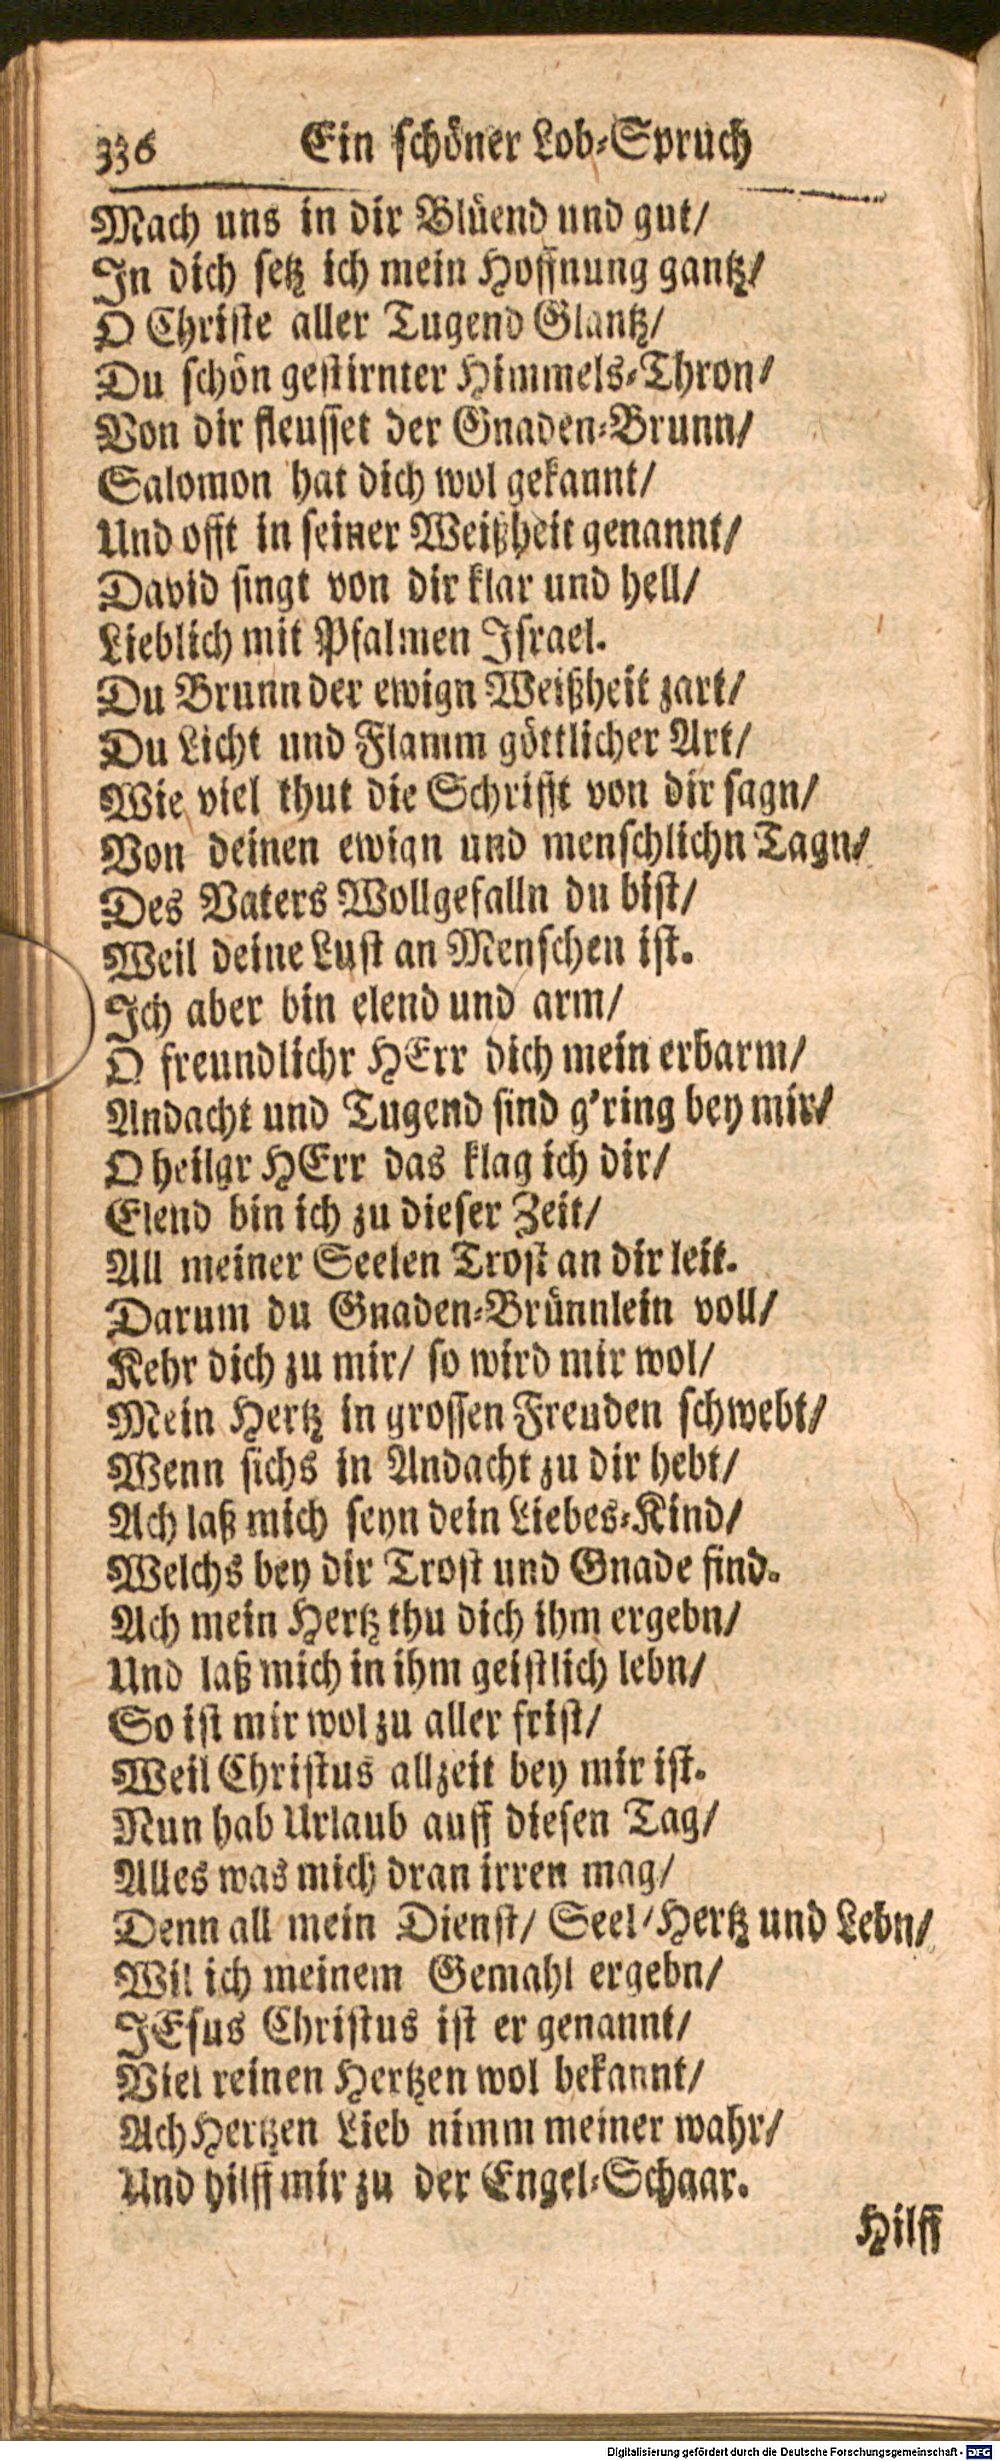 336 Ein schöner Lob-Spruch
Mach uns in dir Blüend und gut/
In dich setz ich mein Hoffnung gantz/
O Christe aller Tugend Glantz/
Du schön gestirnter Himmels-Thron/
Von dir fleusset der Gnaden-Brunn/
Salomon hat dich wol gekannt/
Und offt in seiner Weißheit genannt/
David singt von dir klar und hell/
Lieblich mit Psalmen Israel.
Du Brunn der ewign Weißheit zart/
Du Licht und Flamm göttlicher Art/
Wie viel thut die Schrifft von dir sagn/
Von deinen ewign und menschlichn Tagn/
Des Vaters Wollgefalln du bist/
Weil deine Lust an Menschen ist.
Ich aber bin elend und arm/
O freundlichr HErr dich mein erbarm/
Andacht und Tugend sind g'ring bey mir/
O heilgr HErr das klag ich dir/
Elend bin ich zu dieser Zeit/
All meiner Seelen Trost an dir leit.
Darum du Gnaden-Brünnlein voll/
Kehr dich zu mir/ so wird mir wol/
Mein Hertz in grossen Freuden schwebt/
Wenn sichs in Andacht zu dir hebt/
Ach laß mich seyn dein Liebes-Kind/
Welchs bey dir Trost und Gnade find.
Ach mein Hertz thu dich ihm ergebn/
Und laß mich in ihm geistlich lebn/
So ist mir wol zu aller frist/
Weil Christus allzeit bey mir ist.
Nun hab Urlaub auff diesen Tag/
Alles was mich dran irren mag/
Denn all mein Dienst/ Seel/ Hertz und Lebn/
Wil ich meinem Gemahl ergebn/
JEsus Christus ist er genannt/
Viel reinen Hertzen wol bekannt/
Ach Hertzen Lieb nimm meiner wahr/
Und hilff mir zu der Engel-Schaar.
Hilff
Digitalisierung gefördert durch die Deutsche Forschungsgemeinschaft - DFG